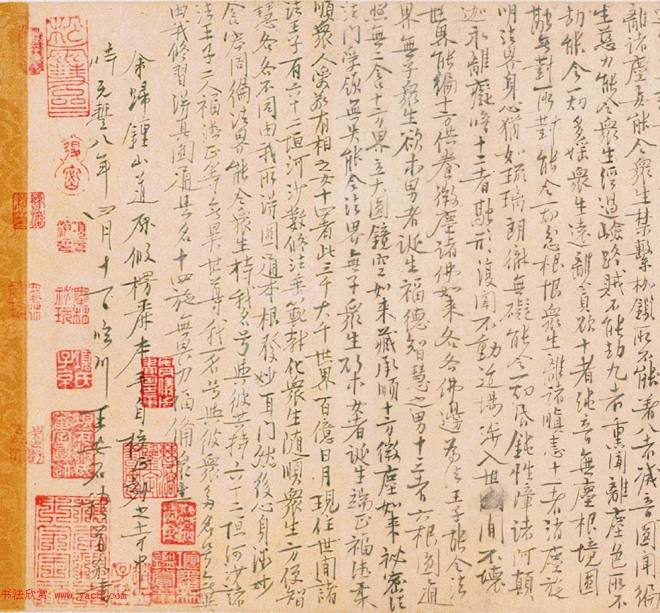 離諸塵妄能令眾生禁繫枷鎖所不能著八者滅音圓聞遍
生慈力能令眾生經過嶮路賊不能劫九者熏聞離塵色所不
劫能令一切多婬眾生遠離貪欲十者純音無塵根境圓
融無對所對能令一切忿恨眾生離諸瞋恚十一者消塵旋
明法界身心猶如琉璃朗徹無礙能令一切昏鈍性障諸阿顛
迦永離癡暗十二者融形復聞不動道場涉入世間不壞
世界能遍十方供養微塵諸佛如來各各佛邊為法王子能令法
界無子眾生欲求男者誕生福德智慧之男十三者六根圓通
照無二含十方界立大圓鏡空如來藏承順十方微塵如來祕密
法門受領無失能令法界無子眾生欲求女者誕生端正福德柔
順眾人愛敬有相之女十四者此三千大千世界百億日月現住世間諸
法王子有六十二恒河沙數修法垂範教化眾生隨順眾生方便智
慧各各不同由我所得圓通本根發妙耳門然後心身微妙
含容周遍法界能令眾生持我名號與彼共持六十二恒河沙諸
法王子二人福德正等無異世尊我一名號與彼眾多名號無異
由我修習得真圓通是名十四施無畏力福備眾生
余歸鍾山道原假楞嚴本手自校正刻之寺中
時元豐八年四月十一日臨川王安石稽首敬書
书法欣赏 www.yac8.com